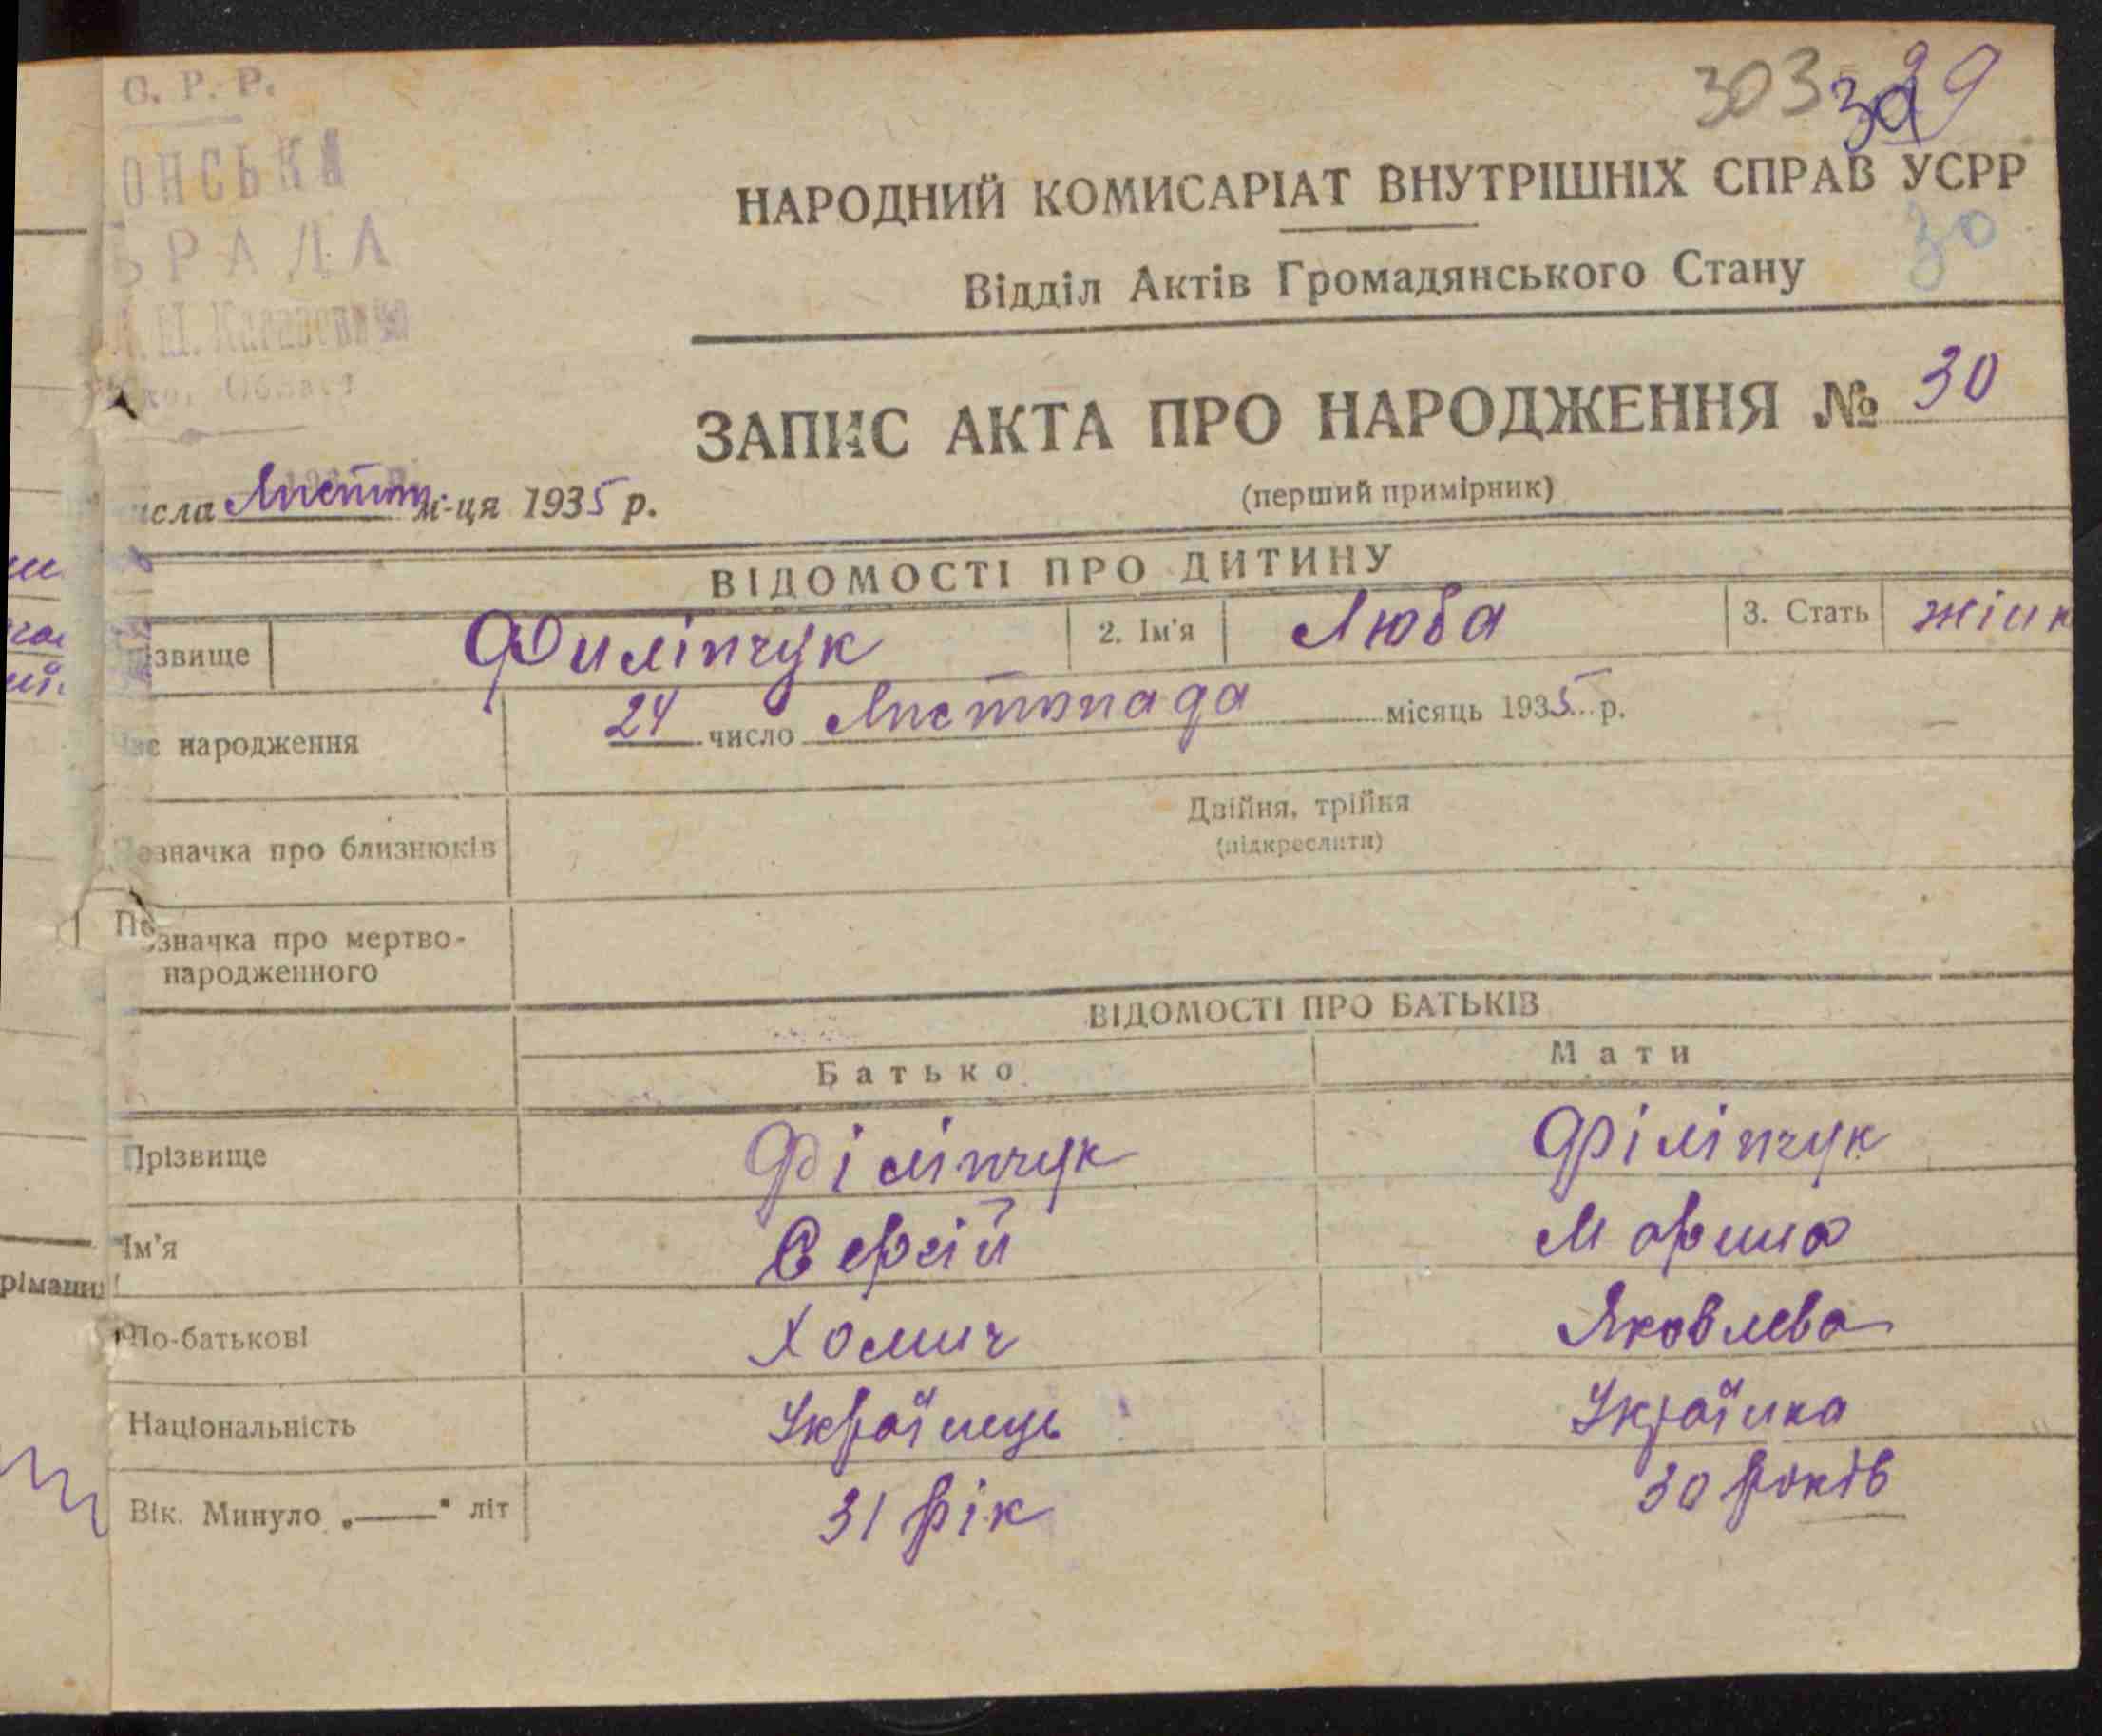 С. Р. Р.
ОНСЬКА
РАДА
303 39
НАРОДНИЙ КОМИСАРІАТ ВНУТРІШНІХ СПРАВ УСРР
30
Відділ Актів Громадянського Стану
ЗАПИС АКТА ПРО НАРОДЖЕННЯ № 30
(перший примірник)
исла Листоп м-ця 1935 р.
ВІДОМОСТІ ПРО ДИТИНУ
звище Филіпчук 2. Ім'я Люба 3. Стать жінк
час народження 24 число Листопада місяць 1935 р.
Позначка про близнюків Двійня, трійня
(підкреслити)
Позначка про мертво-
народженного
ВІДОМОСТІ ПРО БАТЬКІВ
Батько Мати
Прізвище Філіпчук Філіпчук
Ім'я Сергій Марина
По-батькові Хомич Яковлева
Національність Українець Українка
Вік. Минуло „——" літ 31 рік 30 років